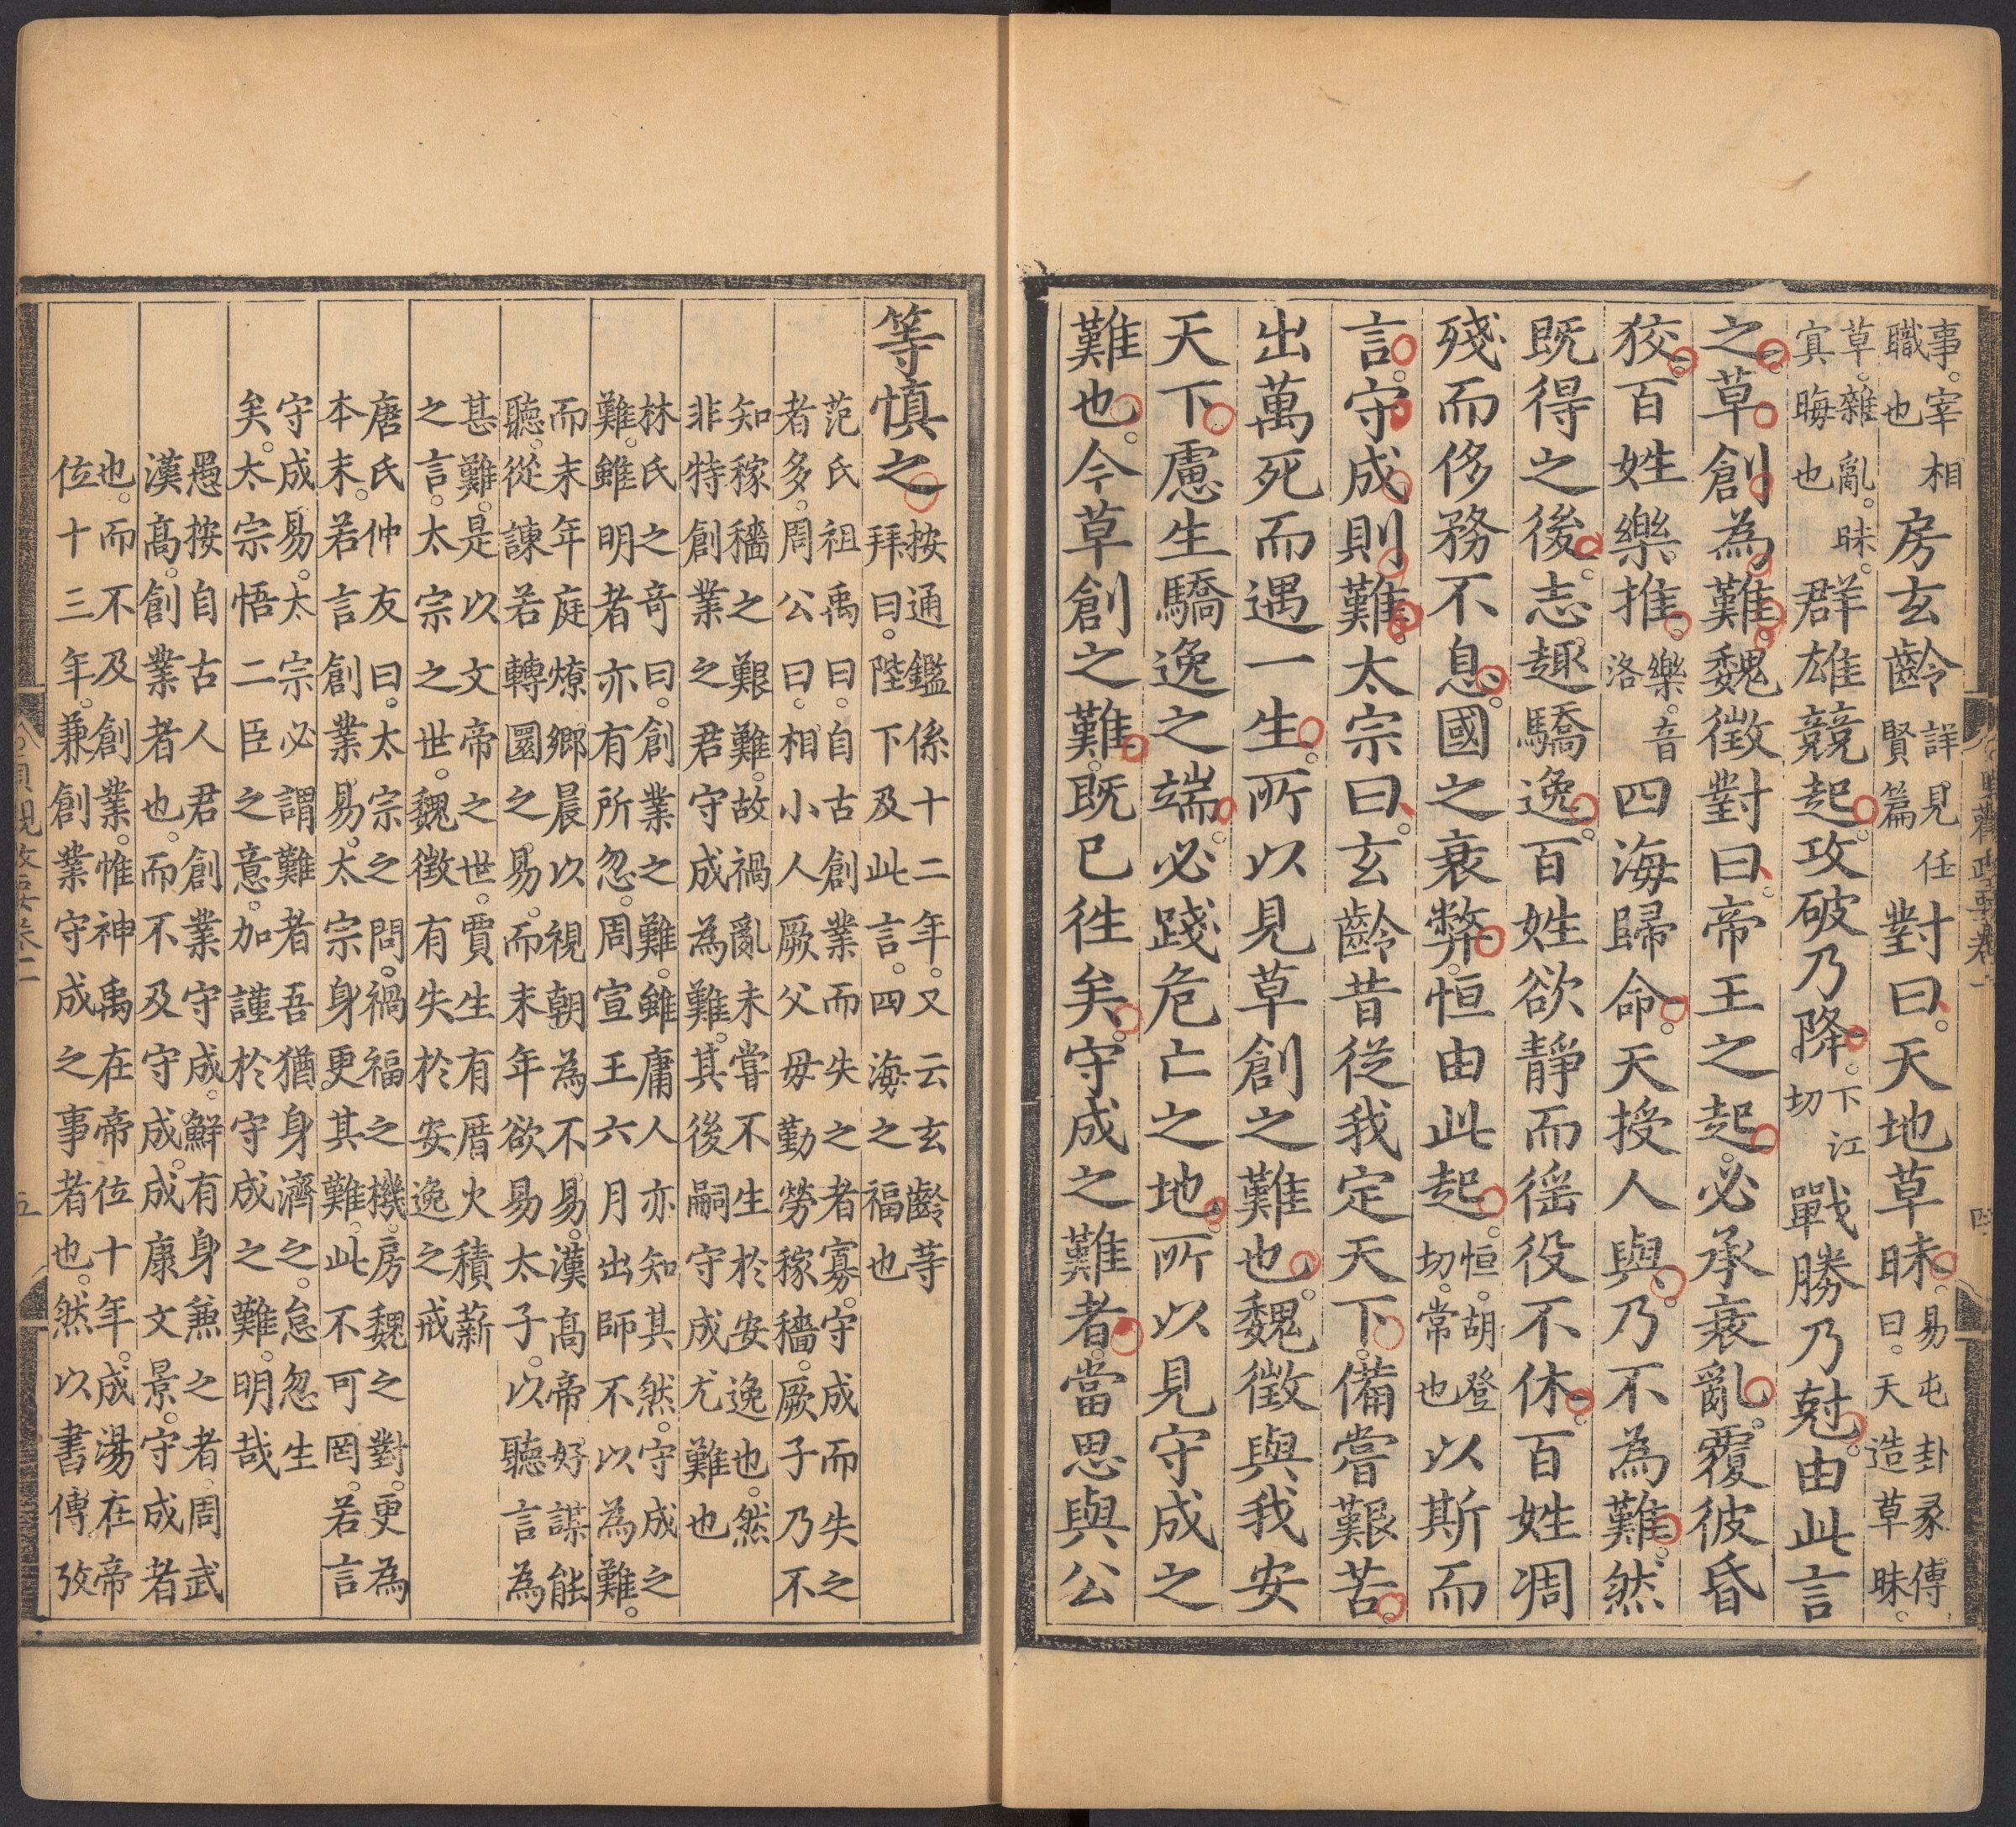 事。宰相職也房玄齡詳見任賢篇對曰。天地草昧。易屯卦彖傳曰。天造草昧。
草。雜亂。昧。㝠晦也群雄競起。攻破乃降。下江切戰勝乃尅。由此言
之。草創為難。魏徵對曰。帝王之起。必承衰亂。覆彼昏
狡。百姓樂推。樂。音洛四海歸命。天授人與。乃不為難。然
既得之後。志趣驕逸。百姓欲靜而徭役不休。百姓凋
殘而侈務不息。國之衰弊。恒由此起。恒。胡登切。常也以斯而
言。守成則難。太宗曰。玄齡昔從我定天下。備嘗艱苦。
出萬死而遇一生。所以見草創之難也。魏徵與我安
天下。慮生驕逸之端。必踐危亡之地。所以見守成之
難也。今草創之難。既已徃矣。守成之難者。當思與公
等慎之。按通鑑係十二年。又云玄齡等拜曰。陛下及此言。四海之福也
范氏祖禹曰。自古創業而失之者寡。守成而失之
者多。周公曰。相小人厥父母勤勞稼穡。厥子乃不
知稼穡之艱難。故禍亂未嘗不生於安逸也。然
非特創業之君守成為難。其後嗣守成尤難也
林氏之奇曰。創業之難。雖庸人亦知其然。守成之
難。雖明者亦有所忽。周宣王六月出師不以為難。
而末年庭燎鄉晨以視朝為不易。漢高帝好謀能
聽。從諫若轉圜之易。而末年欲易太子。以聽言為
甚難。是以文帝之世。賈生有厝火積薪
之言。太宗之世。魏徵有失於安逸之戒
唐氏仲友曰。太宗之問。禍福之機。房魏之對。更為
本末。若言創業易。太宗身更其難。此不可罔。若言
守成易。太宗必謂難者吾猶身濟之。怠忽生
矣。太宗悟二臣之意。加謹於守成之難。明哉
愚按自古人君創業守成。鮮有身兼之者。周武
漢高。創業者也。而不及守成。成康文景。守成者
也。而不及創業。惟神禹在帝位十年。成湯在帝
位十三年。兼創業守成之事者也。然以書傳攷
貞觀政要卷二 五